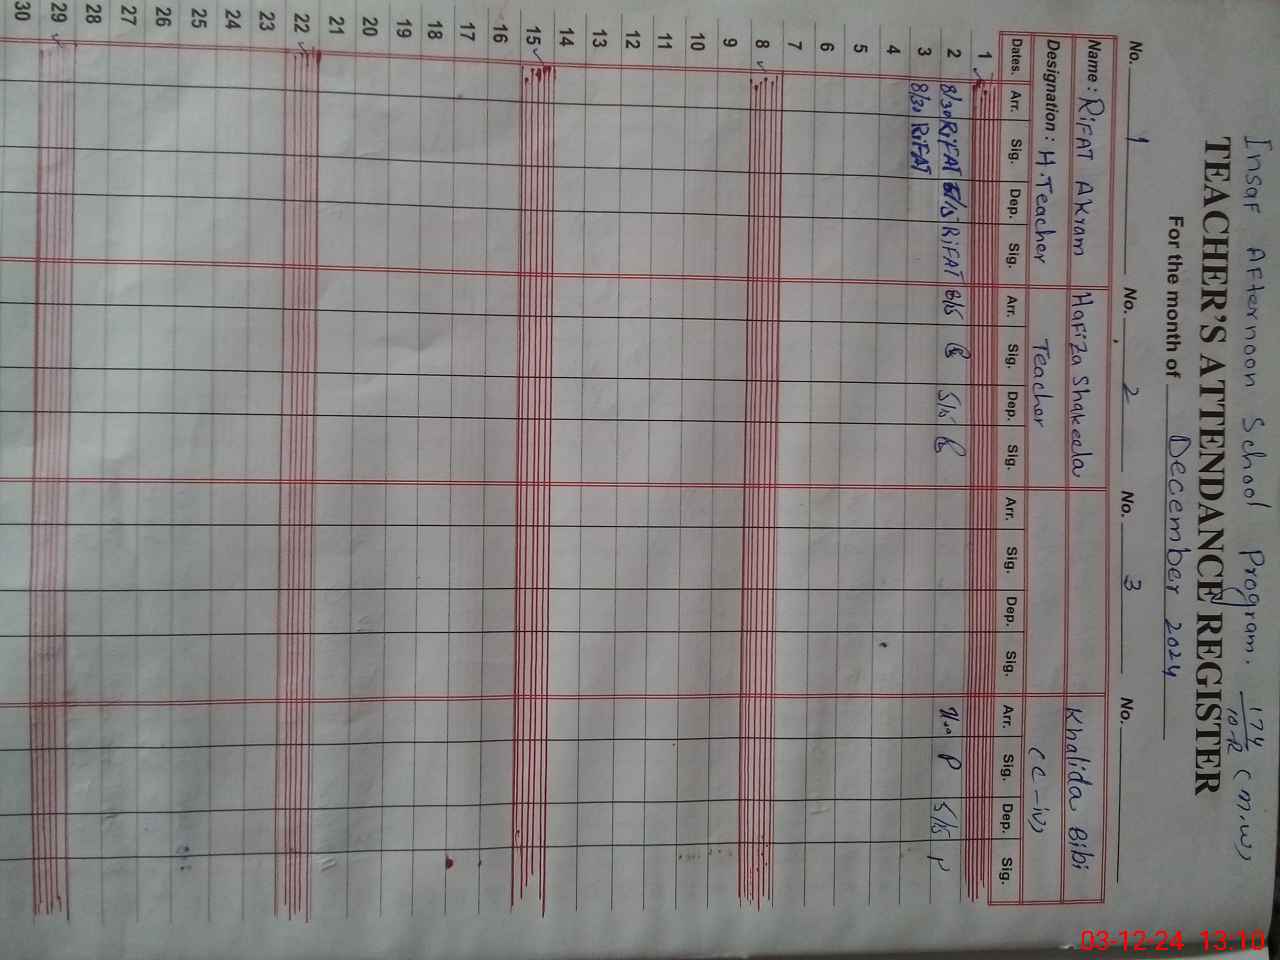 Insaf Afternoon School Program. 174/10-R (M.W)
TEACHER'S ATTENDANCE REGISTER
For the month of December 2024
No. 1 No. 2 No. 3 No.
Name : RIFAT AKram Hafiza Shakeela Khalida Bibi
Designation : H.Teacher Teacher (C-iv)
Dates. Arr. Sig. Dep. Sig. Arr. Sig. Dep. Sig. Arr. Sig. Dep. Sig. Arr. Sig. Dep. Sig.
1
2 8/30 RiFAT 5/15 RiFAT 8/15 5/15 P 5/15 P
3 8/30 RiFAT
4
5
6
7
8
9
10
11
12
13
14
15
16
17
18
19
20
21
22
23
24
25
26
27
28
29
30
03-12-24 13:10